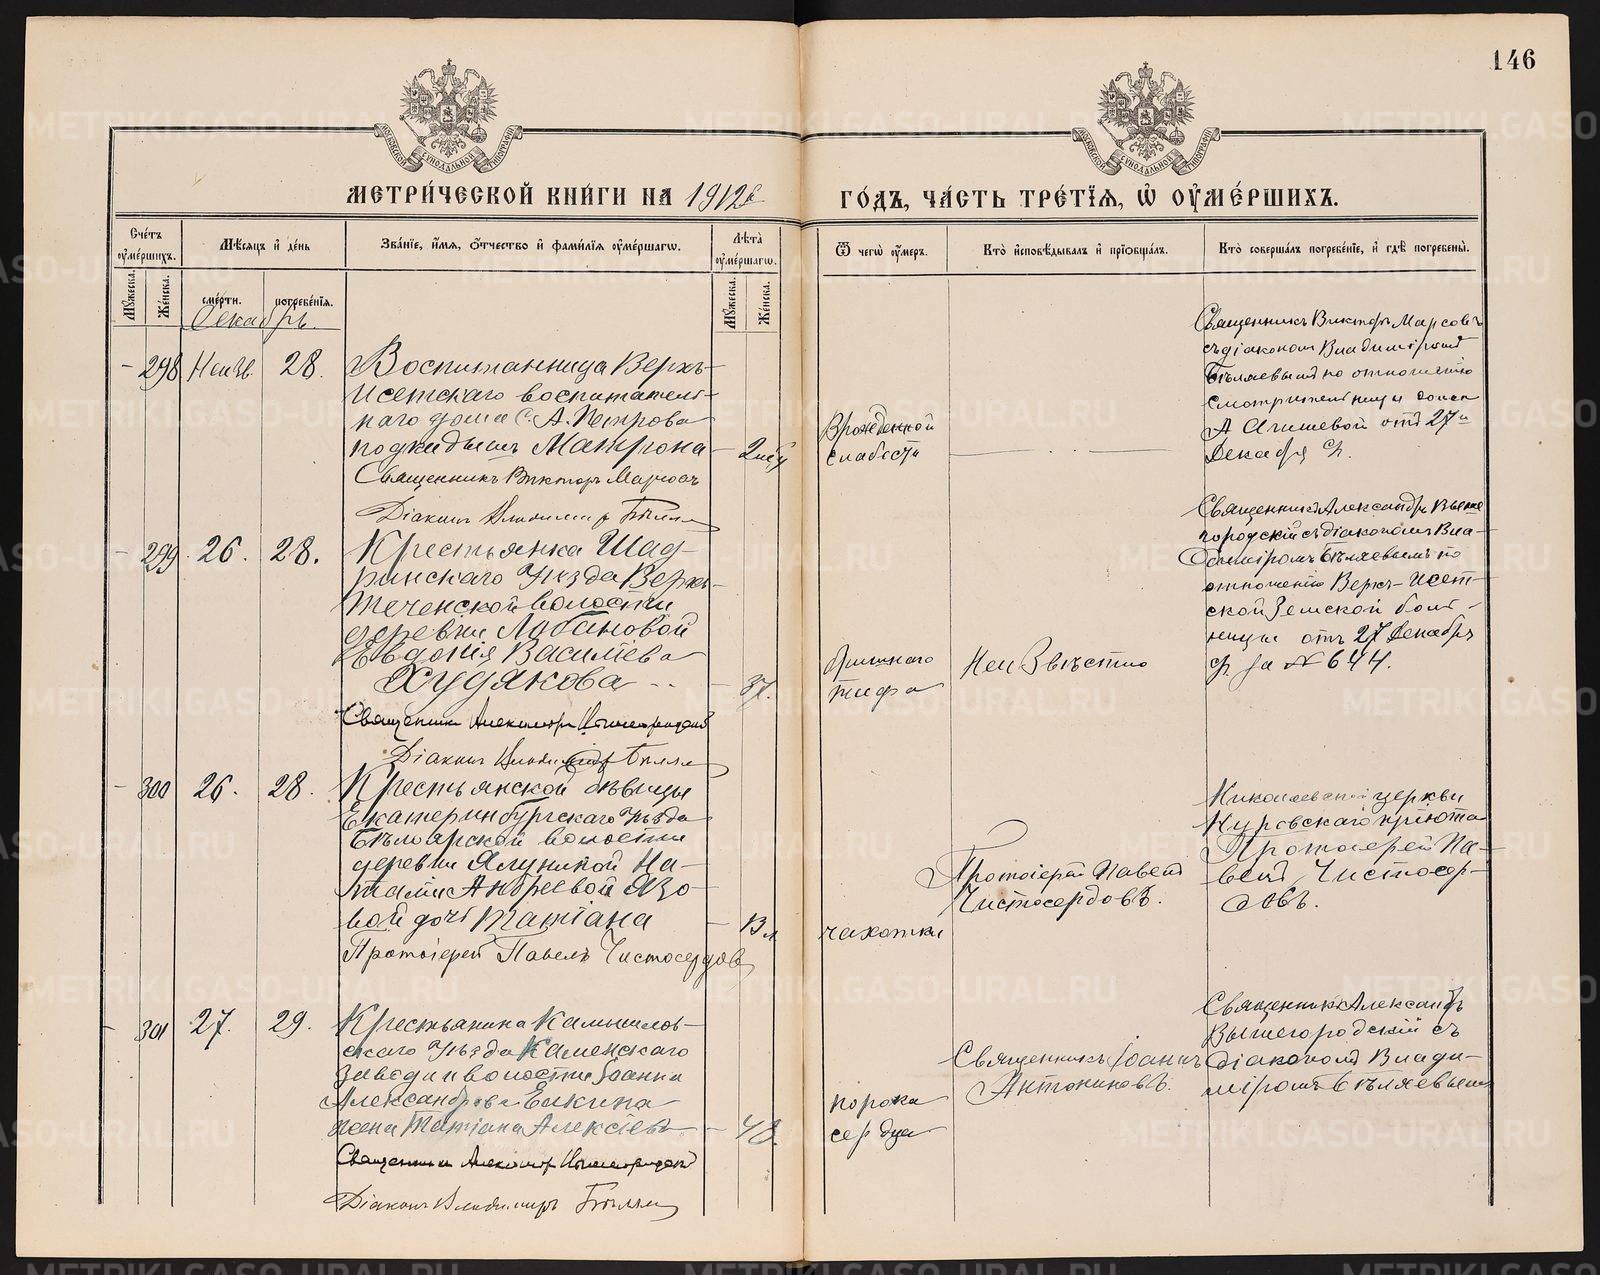 146
МОСКОВСКОЙ СУНОДАЛЬНОЙ ТИПОГРАФІИ
МОСКОВСКОЙ СУНОДАЛЬНОЙ ТИПОГРАФІИ
МЕТРИ́ЧЕСКОЙ КНИ́ГИ НА 1912 г.
ГО́ДЪ, ЧА́СТЬ ТРЕ́ТІѦ, Ѡ ОУМЕ́РШИХЪ.
Сче́тъ оумершихъ.
Мѣсяцъ и день
Званіе, имя, отчество и фамилія оумершагѡ.
Лѣта оумершагѡ.
Ѿ чегѡ оумеръ.
Кто исповѣдывалъ и пріобщалъ.
Кто совершалъ погребеніе, и гдѣ погребены.
Мужеска.
Женска.
смерти.
погребенія.
Мужеска.
Женска.
Декабрь.
298 Неизв. 28.
Воспитанница Верхъ-
Исетскаго воспитатель-
наго дома С. А. Петрова
подкидышъ Матрона
Священникъ Викторъ Марсовъ
Діаконъ Владиміръ Бѣляевъ
Врожденной
слабости
Священникъ Викторъ Марсовъ
съ діакономъ Владиміромъ
Бѣляевымъ по отношенію
смотрительницы дома
А. Агишевой отъ 27го
Декабря
299 26. 28.
Крестьянка Шад-
ринскаго Уѣзда Верхъ-
теченской волости
деревни Лобановой
Евдокія Васильева
Худякова
37.
Священникъ Александръ Вышегородскій
Діаконъ Владиміръ Бѣляевъ
Брюшного
тифа
Неизвѣстно
Священникъ Александръ Выше
городскій съ діакономъ Вла-
диміромъ Бѣляевымъ по
отношенію Верхъ-Исет-
ской Земской боль-
ницы отъ 27 Декабря
за № 644.
300 26. 28.
Крестьянской дѣвицы
Екатеринбургскаго Уѣзда
Бѣлоярской волости
деревни Ялуниной На-
таліи Андреевой Язо-
вой дочь Татіана
Протоіерей Павелъ Чистосердовъ
чахотки
Протоіерей Павелъ
Чистосердовъ.
Николаевской церкви
Нуровскаго пріюта
Протоіерей Па-
велъ Чистосер-
довъ.
301 27. 29.
Крестьянина Камышлов-
скаго Уѣзда Каменскаго
завода и волости Іоанна
Александрова Елкина
жена Татіана Алексіева
48.
Священникъ Александръ Вышегородскій
Діаконъ Владиміръ Бѣляевъ
порока
сердца
Священникъ Іоаннъ
Антониновъ.
Священникъ Александръ
Вышегородскій съ
діакономъ Влади-
міромъ Бѣляевымъ
METRIKI.GASO-URAL.RU